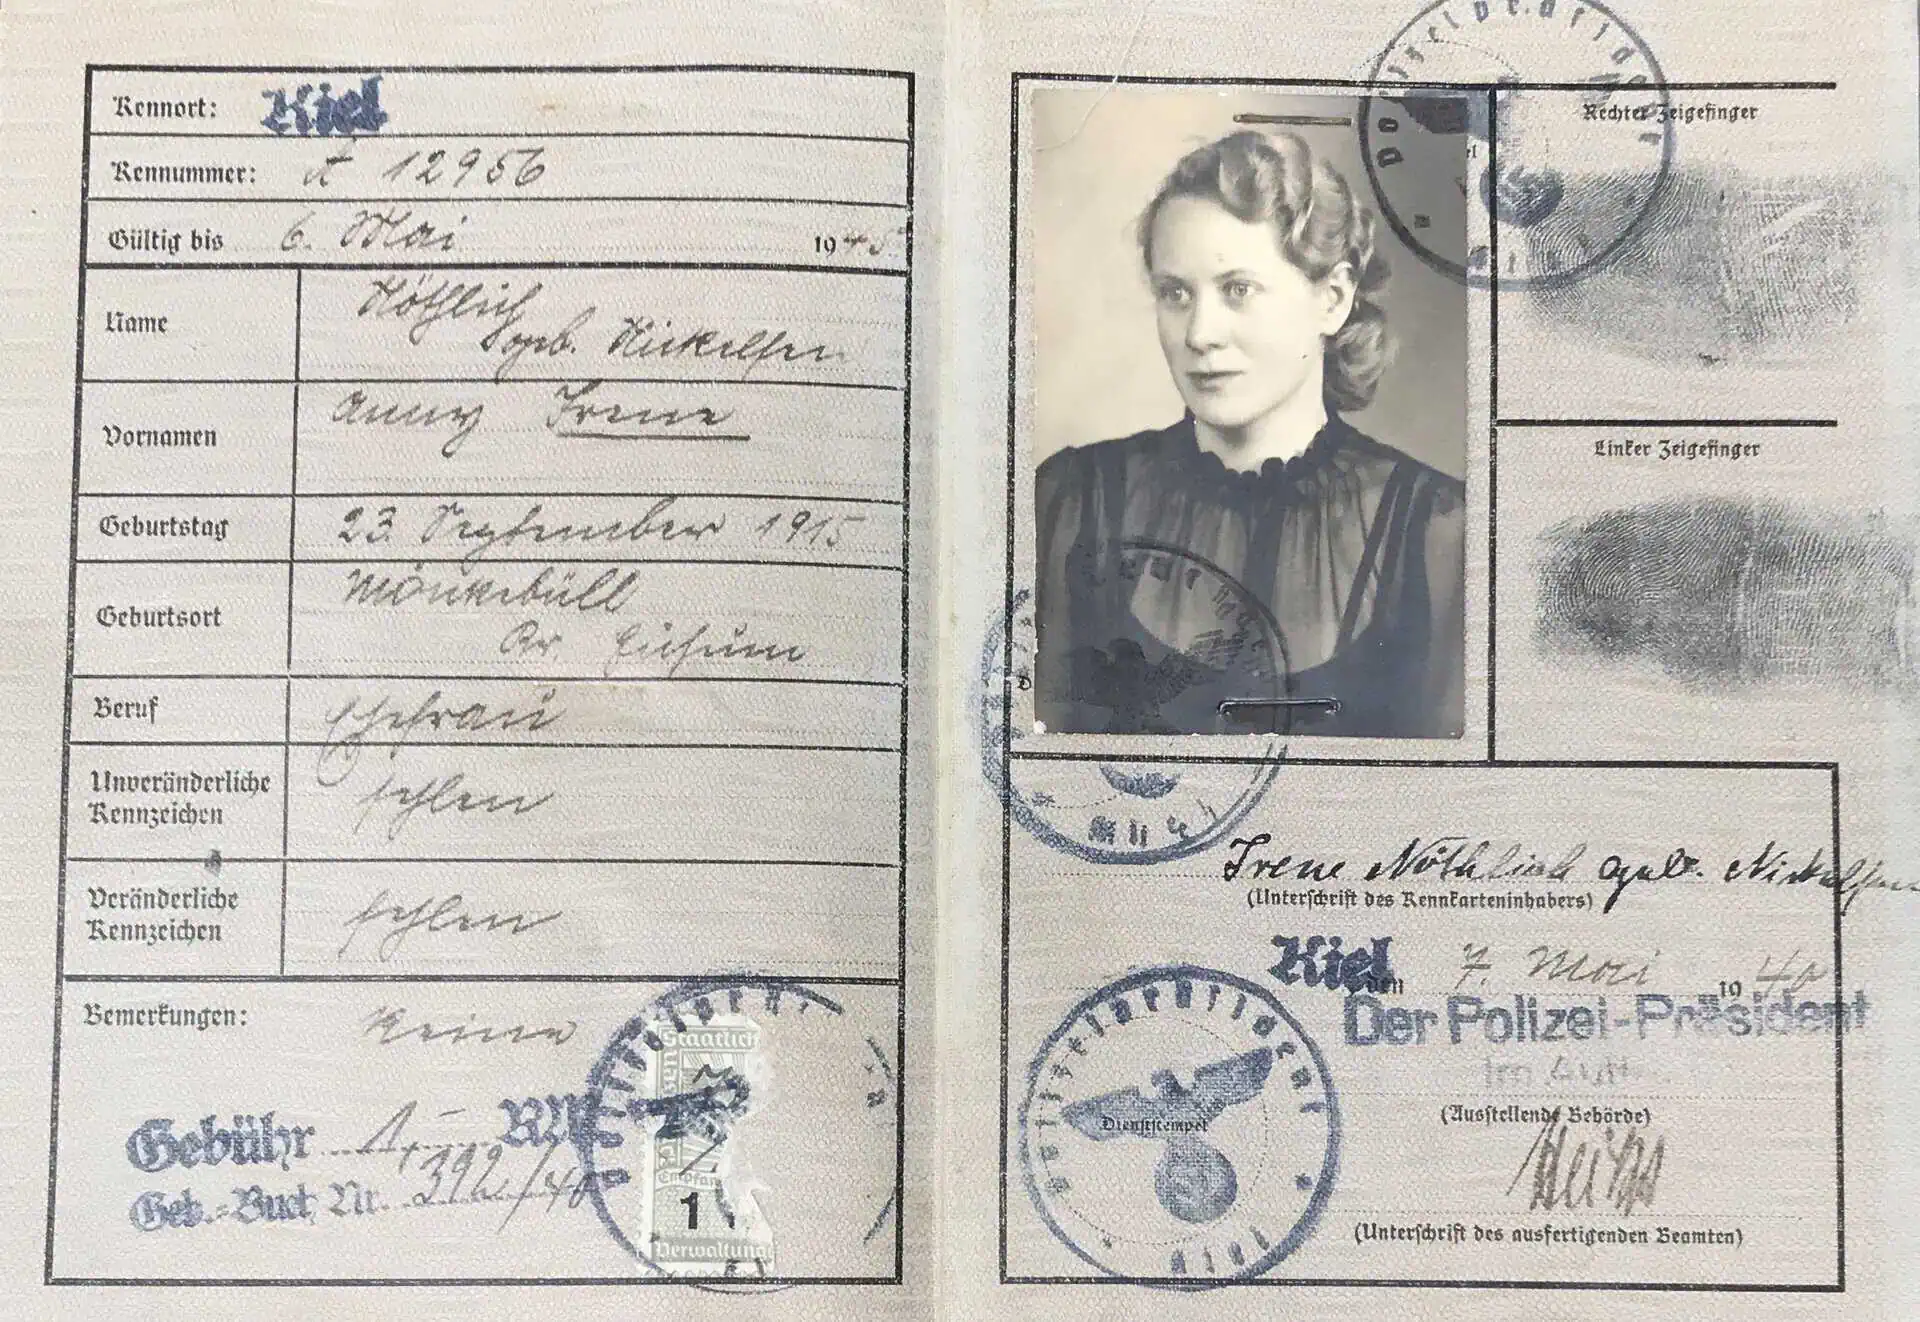 Kennort: Kiel
Kennummer: A 12956
Gültig bis 6. Mai 1945
Name Nöthlich
geb. Nickelsen
Vornamen Anny Irene
Geburtstag 23. September 1915
Geburtsort Mönkebüll
Kr. Husum
Beruf Ehefrau
Unveränderliche
Kennzeichen fehlen
Veränderliche
Kennzeichen fehlen
Bemerkungen: Keine
Gebühr 1,- RM
Geb.-Buch Nr. 392/40
Staatlich
1
Verwaltung
Rechter Zeigefinger
Linker Zeigefinger
Irene Nöthlich geb. Nickelsen
(Unterschrift des Kennkarteninhabers)
Kiel den 7. Mai 1940
Der Polizei-Präsident
Im Auftr
(Ausstellende Behörde)
Dienststempel
Polizeipräsident
Kiel
(Unterschrift des ausfertigenden Beamten)